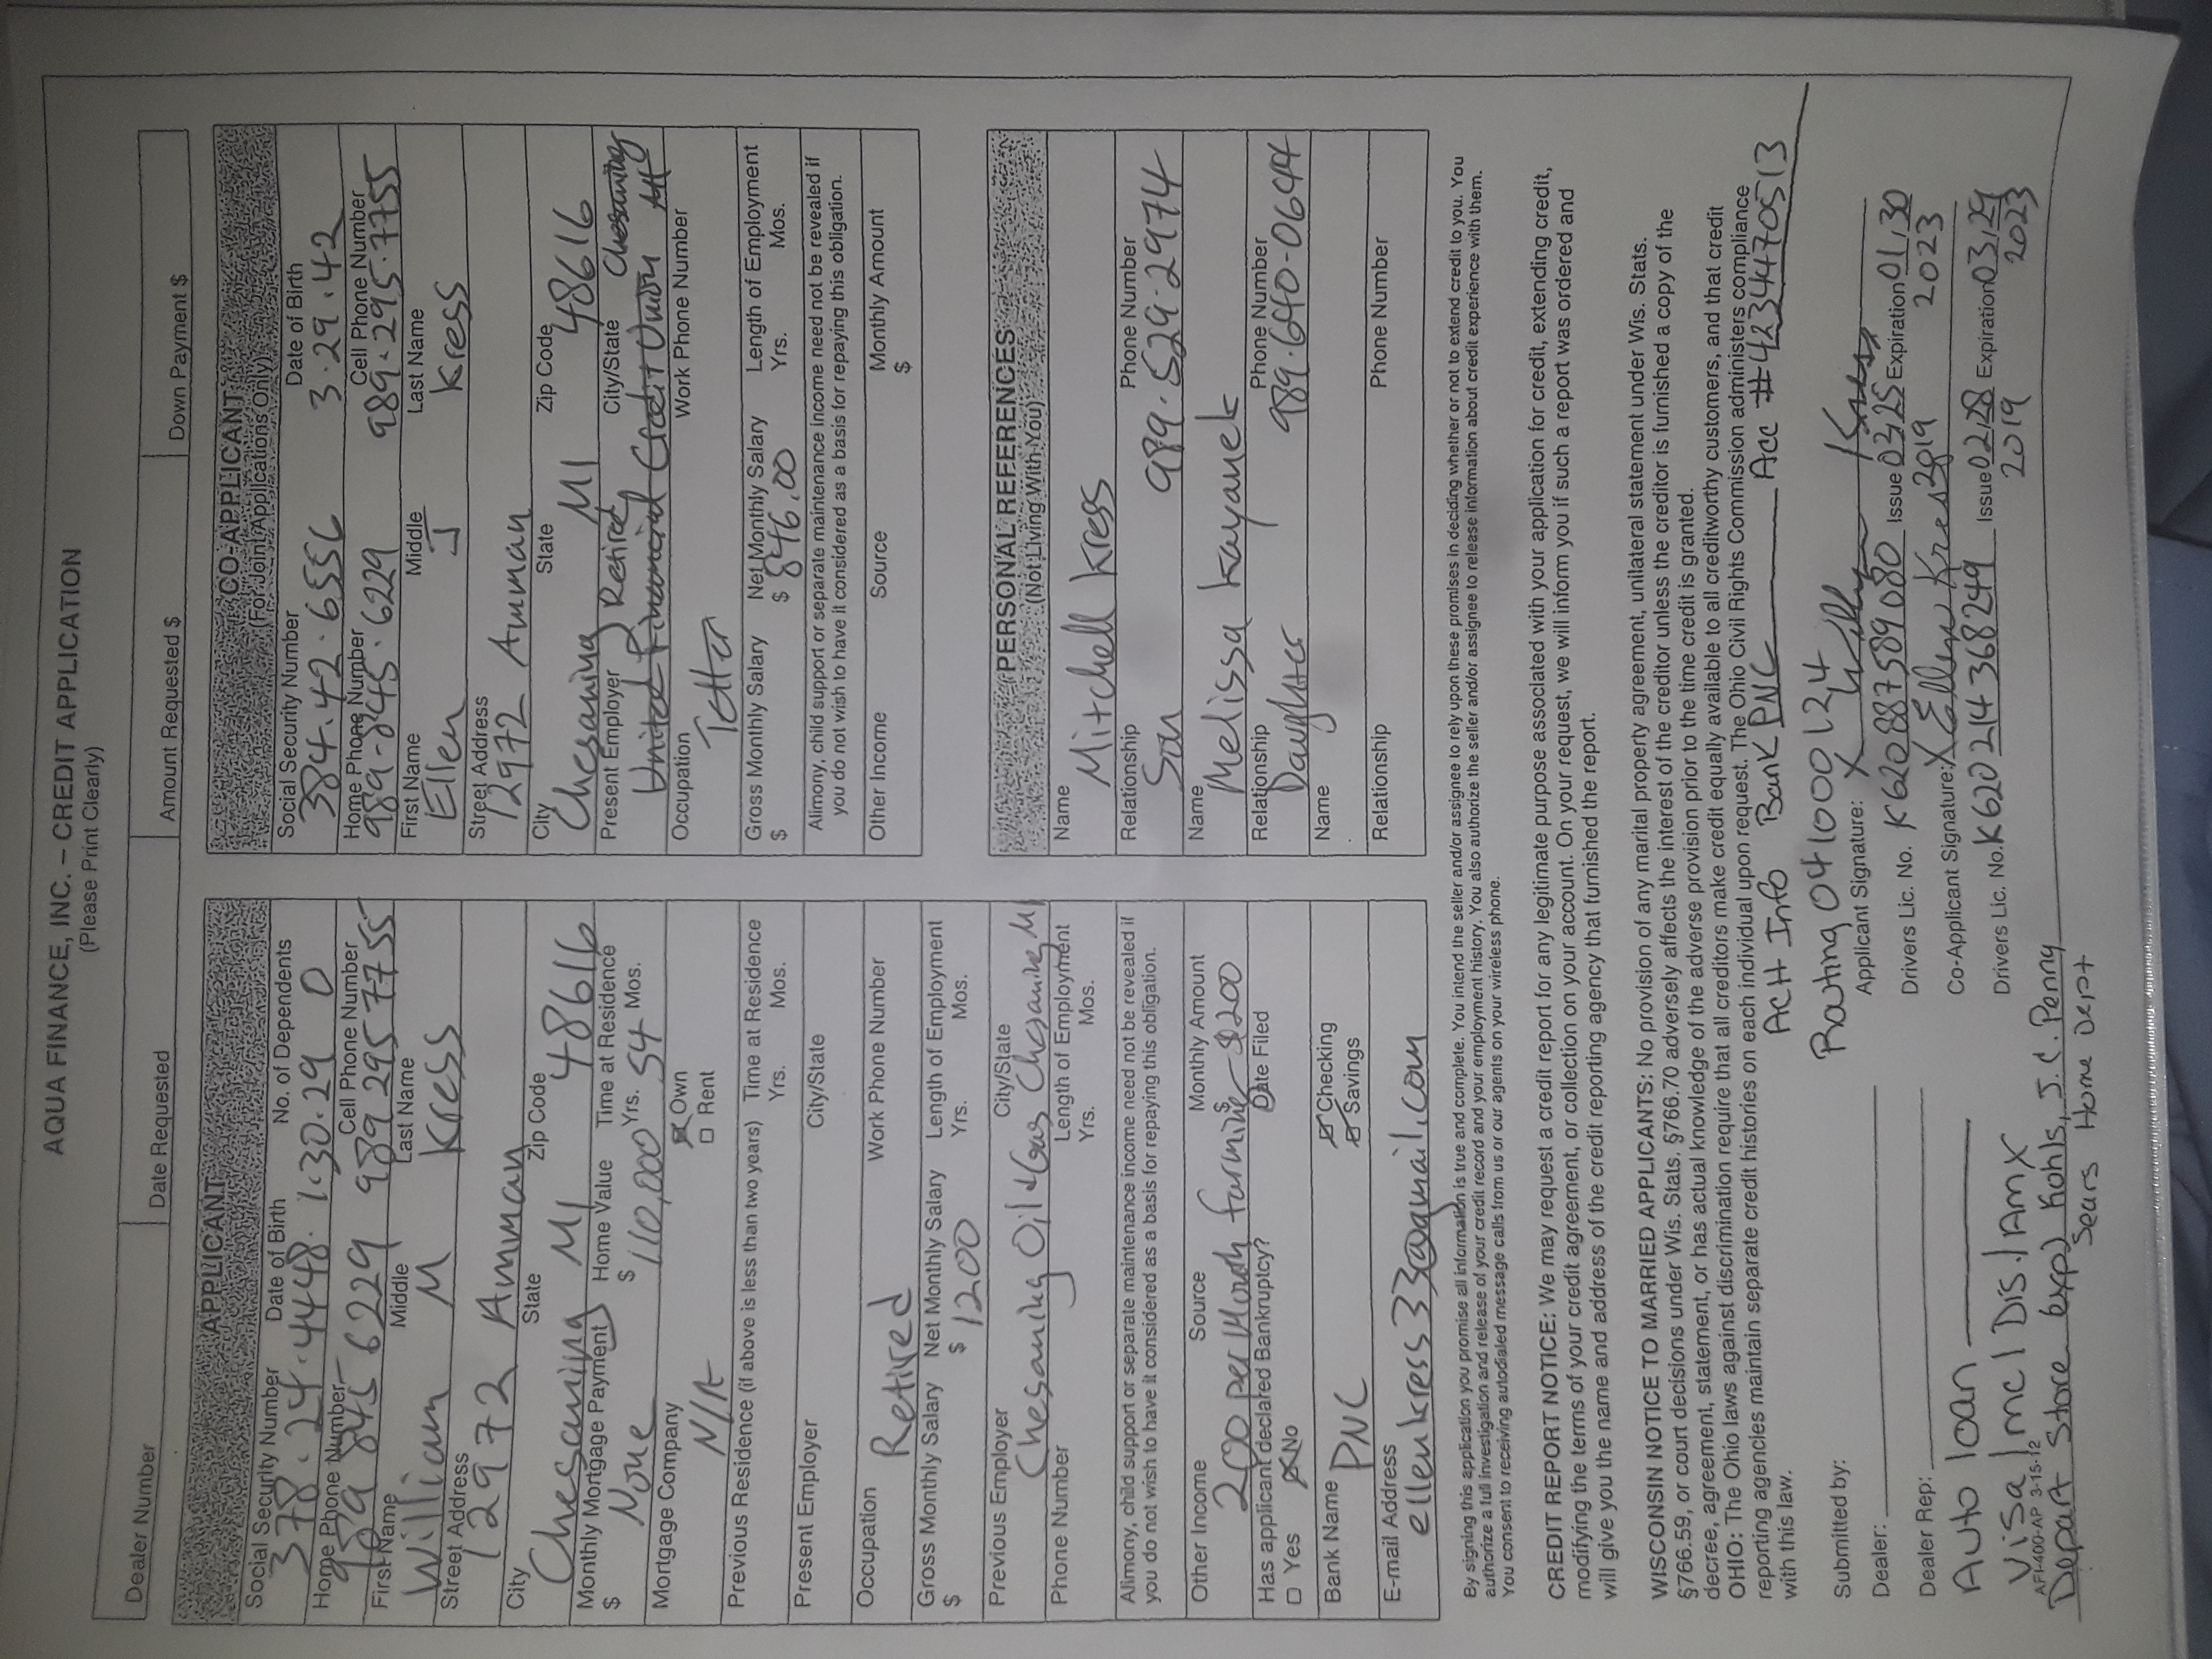 AQUA FINANCE, INC. – CREDIT APPLICATION
(Please Print Clearly)
Dealer Number
Date Requested
Amount Requested $
Down Payment $
APPLICANT
Social Security Number Date of Birth No. of Dependents
378.24.4448. 1.30.29 0
Home Phone Number Cell Phone Number
989 845 6229 989 295 7755
First Name Middle Last Name
William M Kress
Street Address
12972 Amman
City State Zip Code
Chesaning MI 48616
Monthly Mortgage Payment Home Value Time at Residence
$ None $ 110,000 Yrs. 54 Mos.
Mortgage Company Own
N/A Rent
Previous Residence (if above is less than two years) Time at Residence
Yrs. Mos.
Present Employer City/State
Occupation Work Phone Number
Retired
Gross Monthly Salary Net Monthly Salary Length of Employment
$ $ 1200 Yrs. Mos.
Previous Employer City/State
Chesaning Oil & Gas Chesaning MI
Phone Number Length of Employment
Yrs. Mos.
Alimony, child support or separate maintenance income need not be revealed if
you do not wish to have it considered as a basis for repaying this obligation.
Other Income Source Monthly Amount
200 per Month farming $ $200
Has applicant declared Bankruptcy? Date Filed
Yes No
Bank Name Checking
PNC Savings
E-mail Address
ellenkress33@gmail.com
CO-APPLICANT
(For Joint Applications Only)
Social Security Number Date of Birth
384.42.6556 3.29.42
Home Phone Number Cell Phone Number
989-845.6229 989.295.7755
First Name Middle Last Name
Ellen J Kress
Street Address
12972 Amman
City State Zip Code
Chesaning MI 48616
Present Employer City/State
Retired
United Financial Credit Union Chesaning
Occupation Work Phone Number
Gross Monthly Salary Net Monthly Salary Length of Employment
$ $ 846.00 Yrs. Mos.
Alimony, child support or separate maintenance income need not be revealed if
you do not wish to have it considered as a basis for repaying this obligation.
Other Income Source Monthly Amount
$
PERSONAL REFERENCES
(Not Living With You)
Name
Mitchell Kress
Relationship Phone Number
Son 989.529.2974
Name
Melissa Kayanek
Relationship Phone Number
Daughter 989.640-0644
Name
Relationship Phone Number
By signing this application you promise all information is true and complete. You intend the seller and/or assignee to rely upon these promises in deciding whether or not to extend credit to you. You
authorize a full investigation and release of your credit record and your employment history. You also authorize the seller and/or assignee to release information about credit experience with them.
You consent to receiving autodialed message calls from us or our agents on your wireless phone.
CREDIT REPORT NOTICE: We may request a credit report for any legitimate purpose associated with your application for credit, extending credit,
modifying the terms of your credit agreement, or collection on your account. On your request, we will inform you if such a report was ordered and
will give you the name and address of the credit reporting agency that furnished the report.
WISCONSIN NOTICE TO MARRIED APPLICANTS: No provision of any marital property agreement, unilateral statement under Wis. Stats.
§766.59, or court decisions under Wis. Stats. §766.70 adversely affects the interest of the creditor unless the creditor is furnished a copy of the
decree, agreement, statement, or has actual knowledge of the adverse provision prior to the time credit is granted.
OHIO: The Ohio laws against discrimination require that all creditors make credit equally available to all creditworthy customers, and that credit
reporting agencies maintain separate credit histories on each individual upon request. The Ohio Civil Rights Commission administers compliance
with this law.
ACH Info Bank PNC Acc # 4234470513
Routing 041000124
Submitted by:
Dealer:
Dealer Rep:
Applicant Signature: X
Drivers Lic. No. K620887589080 Issue 03,25 2019 Expiration 01,30 2023
Co-Applicant Signature: X Ellen Kress
Drivers Lic. No. K620214368249 Issue 02,28 2019 Expiration 03,29 2023
Auto loan
Visa/mc/Dis./Amx
AFI-400-AP 3-15-12
Depart Store exp) Kohls, J.C. Penny
Sears Home Dept